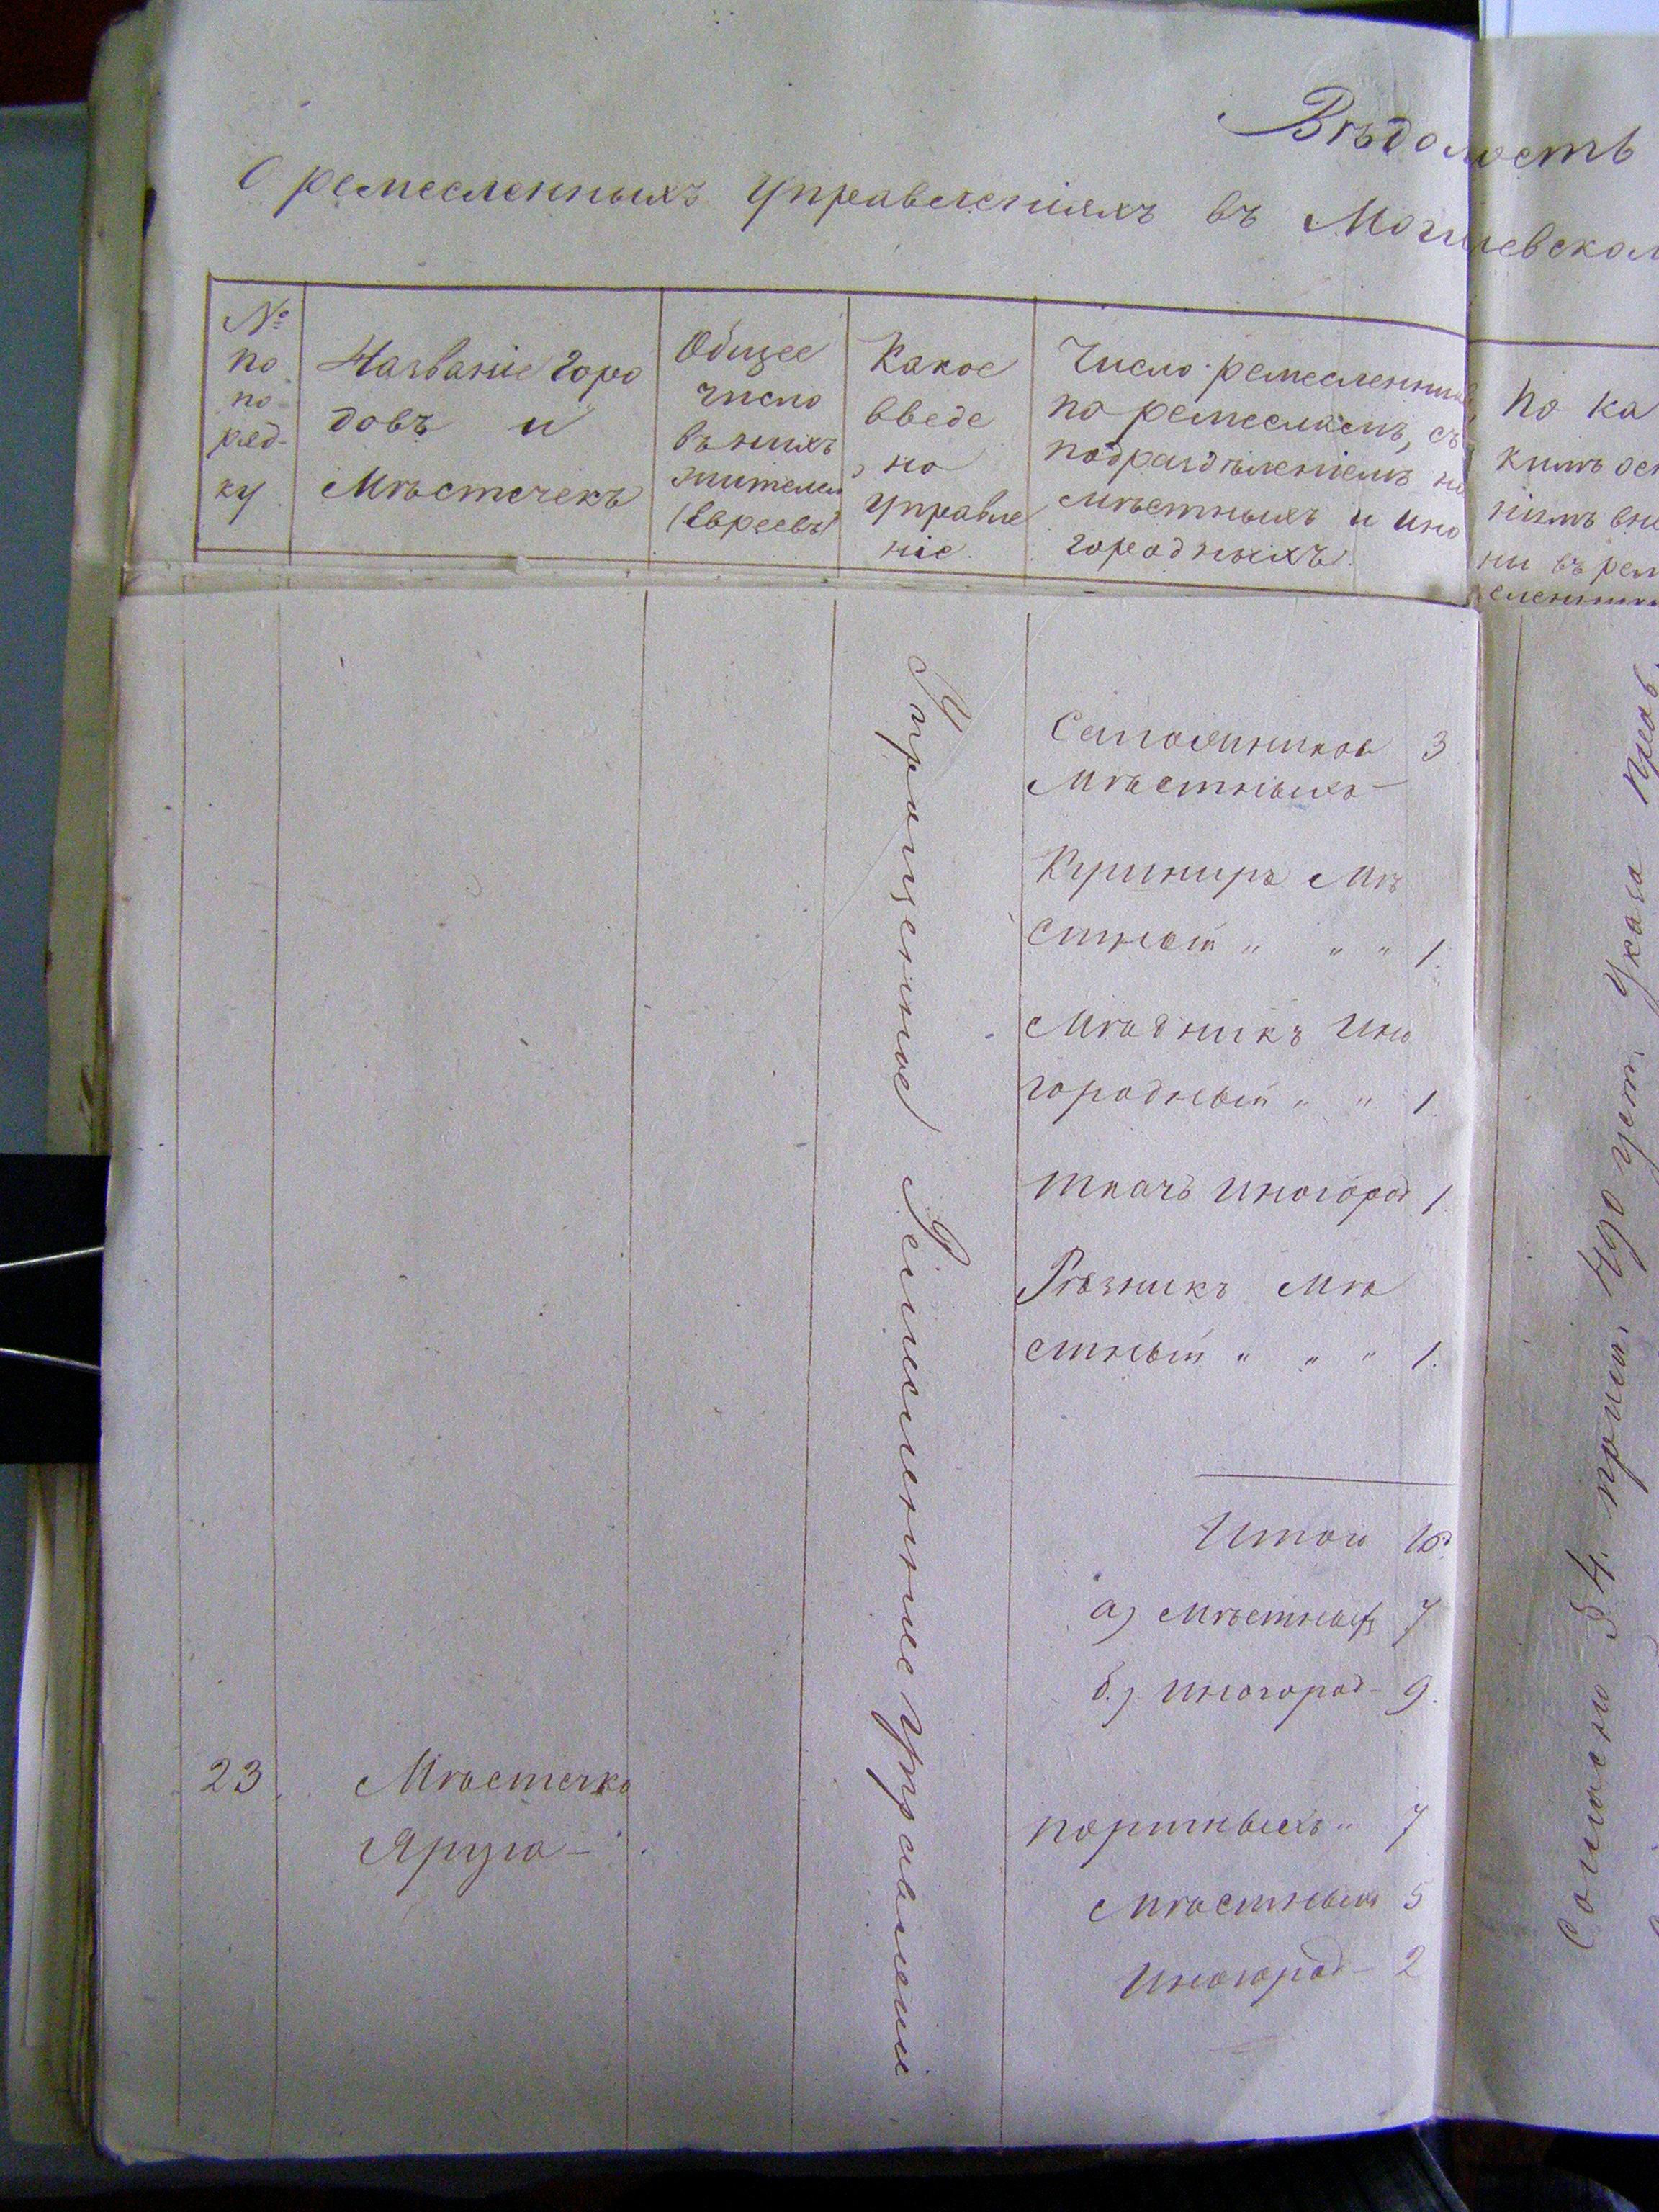 Вѣдомость
О ремесленныхъ управленіяхъ въ Могилевском
№ по порядку
Названіе городовъ и Мѣстечекъ
Общее число въ нихъ жителей (Евреевъ)
Какое введено управленіе.
Число ремесленник
по ремесламъ, съ
подраздѣленіемъ на
мѣстныхъ и ино
городныхъ.
По ка
кимъ
ніямъ
ни въ рем
сленники
Упрощенное Ремесленное управленіе
Сапожниковъ 3
Мѣстныхъ —
Мѣ
стный " " " 1.
Мѣдникъ Ино
городный " " 1.
Ткачъ иногород 1.
Рѣзникъ Мѣ
стный " " " 1.
Итого 16.
а) Мѣстныхъ 7
б.) иногород — 9.
23. Мѣстечко
Яруга —
портныхъ " 7
Мѣстныхъ 5
Иногород — 2
Согласно § 4. прим. 490 уст. Указа прав.